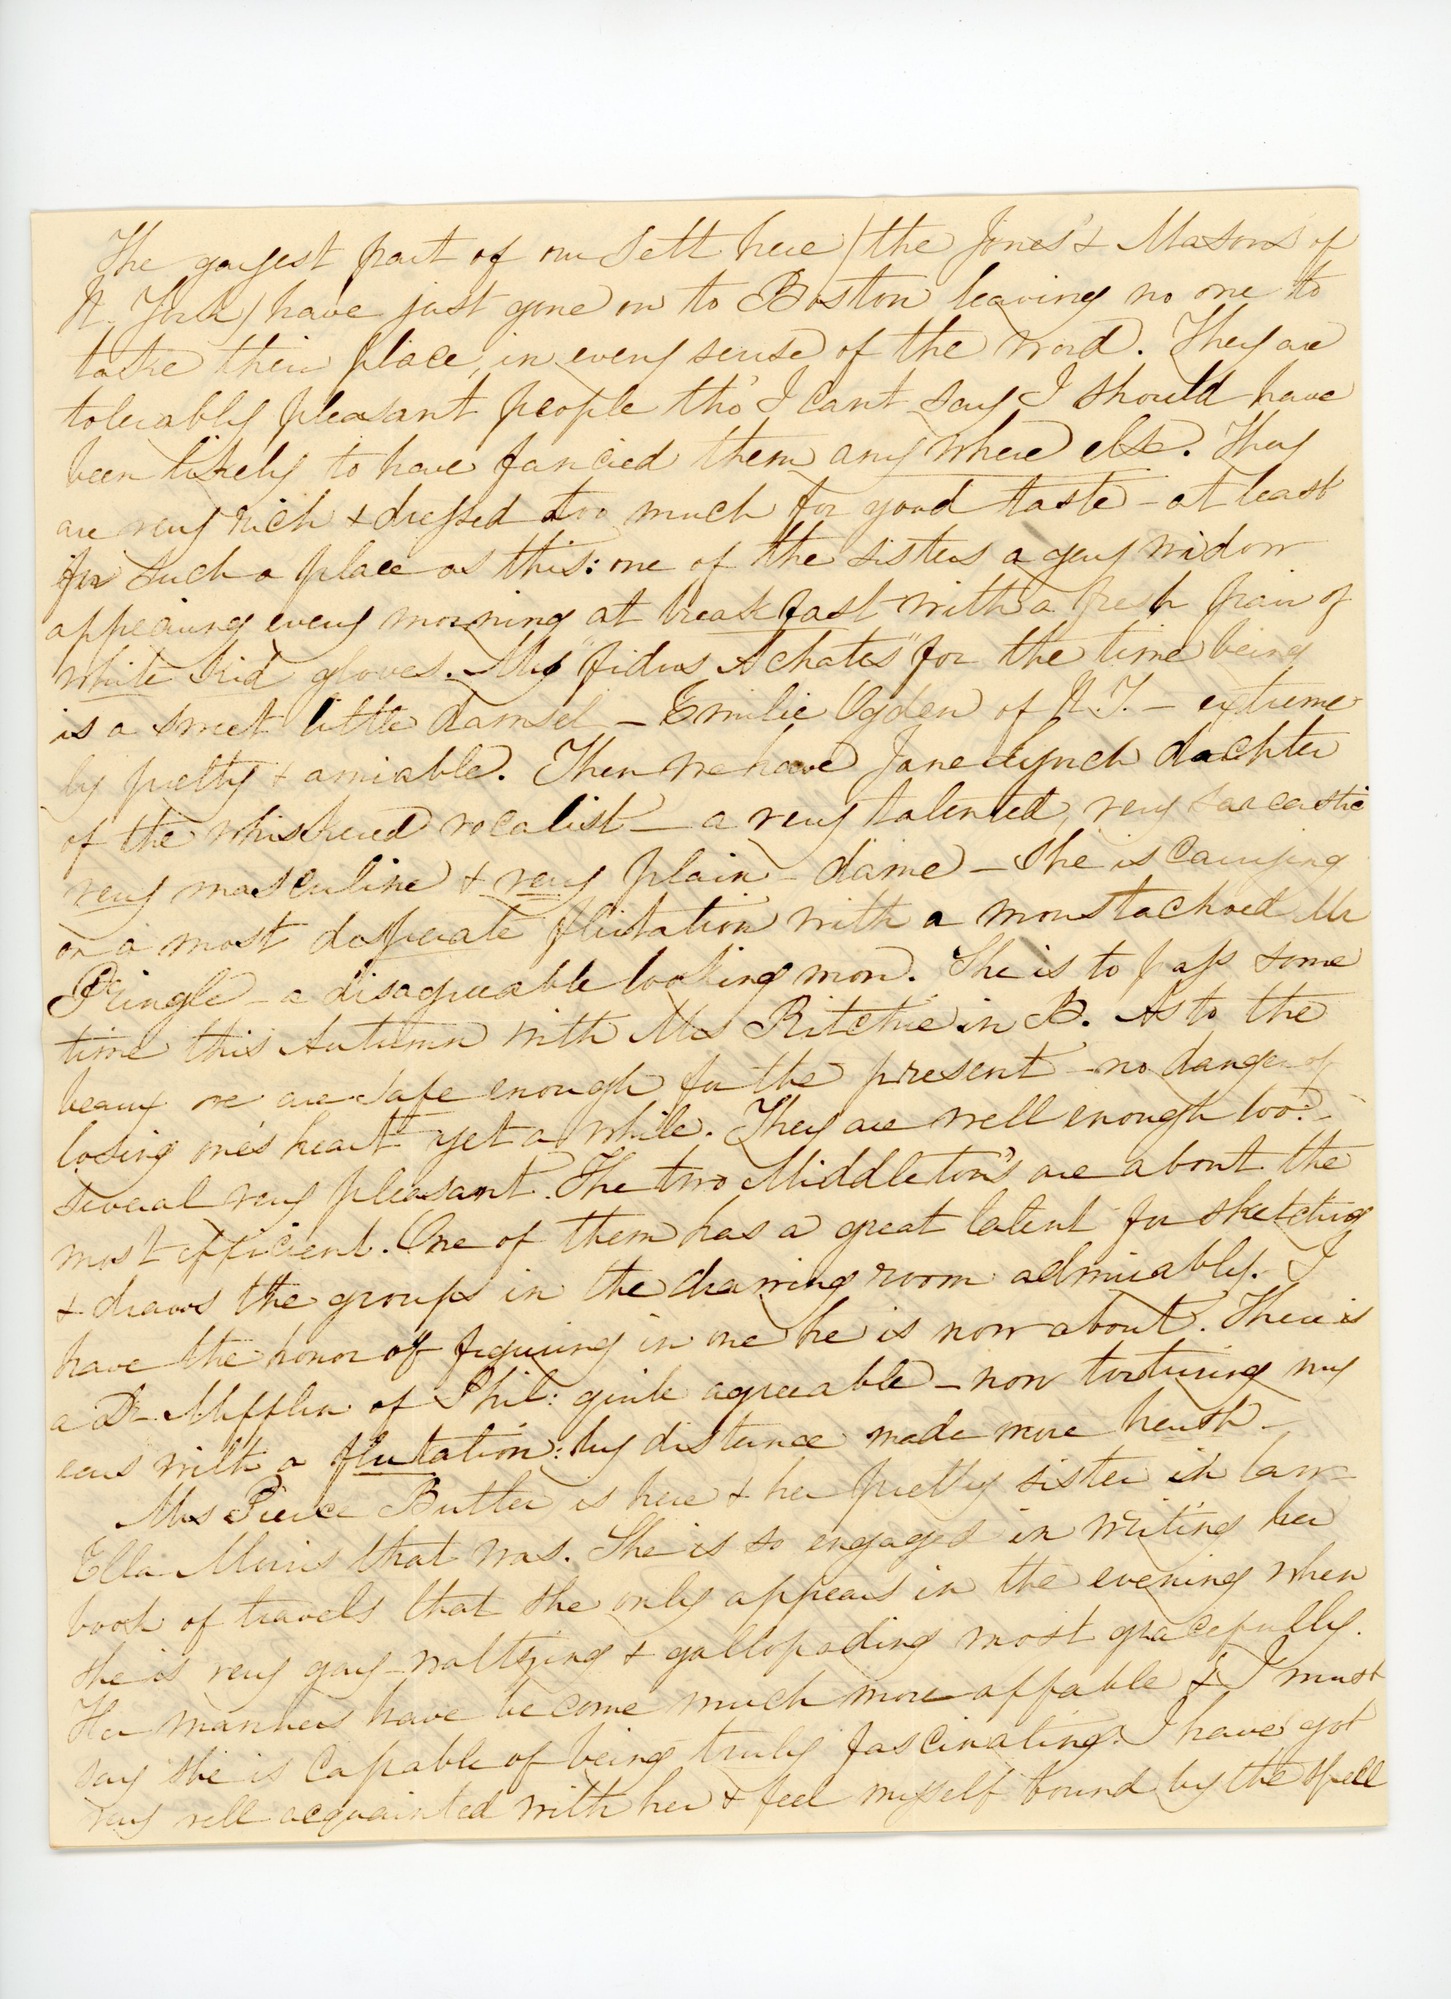 The gayest part of our Sett here (the Jones's & Masons of
N. York) have just gone on to Boston leaving no one to
take their place, in every sense of the word. They are
tolerably pleasant people tho' I cant say I should have
been likely to have fancied them any where else. They
are very rich & dressed too much for good taste - at least
for such a place as this: one of the sisters a gay widow
appearing every morning at breakfast with a fresh pair of
white kid gloves. My "fidus Achates" for the time being
is a sweet little damsel - Emilie Ogden of N.Y. - extreme-
ly pretty & amiable. Then we have Jane Lynch dachter
of the whiskered vocalist - a very talented, very sarcastic
very masculine & very plain - dame - She is carrying
on a most desperate flirtation with a moustachoed Mr
Pringle - a disagreeable looking man. She is to pass some
time this Autumn with Mrs Ritchie in B. As to the
beaux we are safe enough for the present - no danger of
losing one's heart yet a while. They are well enough too? -
several very pleasant. The two Middleton's are about the
most efficient. One of them has a great talent for sketching
& draws the groups in the drawing room admirably. I
have the honor of figuring in one he is now about. There is
a Dr Mifflin of Phil: quite agreeable - now torturing my
ears with a flutation: by distance made more harsh -
Mrs Pierce Butler is here & her pretty sister in law -
Ella Morris that was. She is so engaged in writing her
book of travels that she only appears in the evening when
she is very gay - waltzing & gallopading most gracefully.
Her manners have become much more affable & I must
say she is capable of being truly fascinating. I have got
very well acquainted with her & feel myself bound by the spell